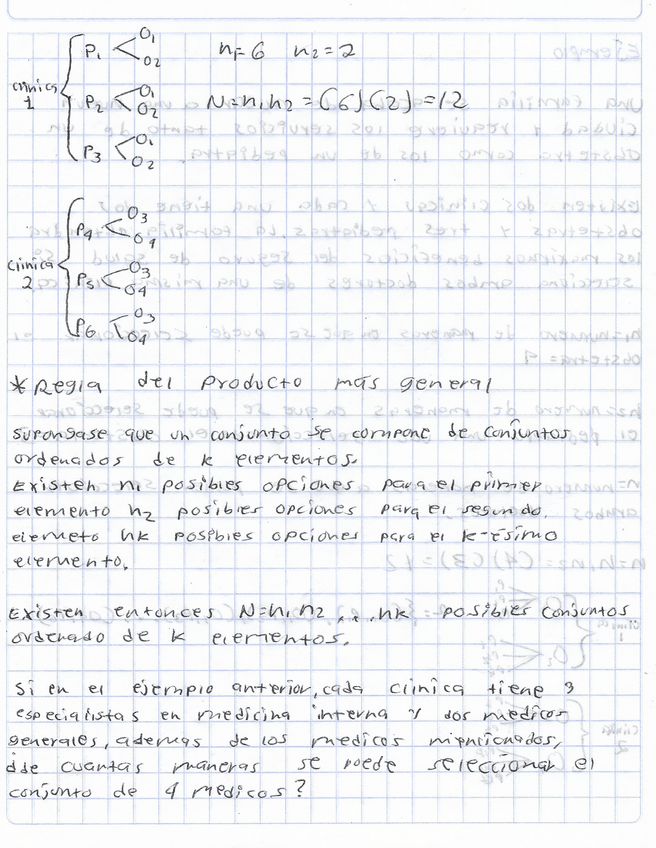 clinica 1
P1 < O1
O2
n1=6 n2=2
P2 < O1
O2
N=n1n2=(6)(2)=12
P3 < O1
O2
clinica 2
P4 < O3
O4
P5 < O3
O4
P6 < O3
O4
*Regla del Producto más general
supongase que un conjunto se compone de conjuntos
ordenados de k elementos.
Existen n1 posibles opciones para el primer
elemento n2 posibles opciones para el segundo.
elemeto nk posibles opciones para el k-ésimo
elemento.
Existen entonces N=n1n2...nk posibles conjuntos
ordenado de k elementos.
Si en el ejemplo anterior, cada clinica tiene 3
especialistas en medicina interna y dos medicos
generales, ademas de los medicos
de cuantas maneras se puede seleccionar el
conjunto de 4 medicos?